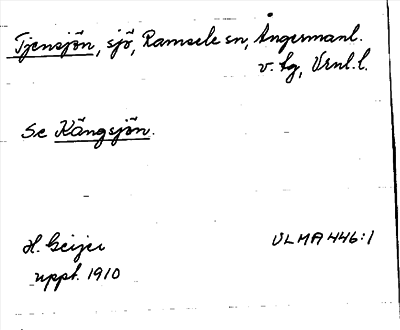 Tjensjön, sjö, Ramsele sn, Ångermanl.
v. lg, Vrnl. l.
Se Kängsjön.
H. Geijer
ULMA 446:1
uppt. 1910